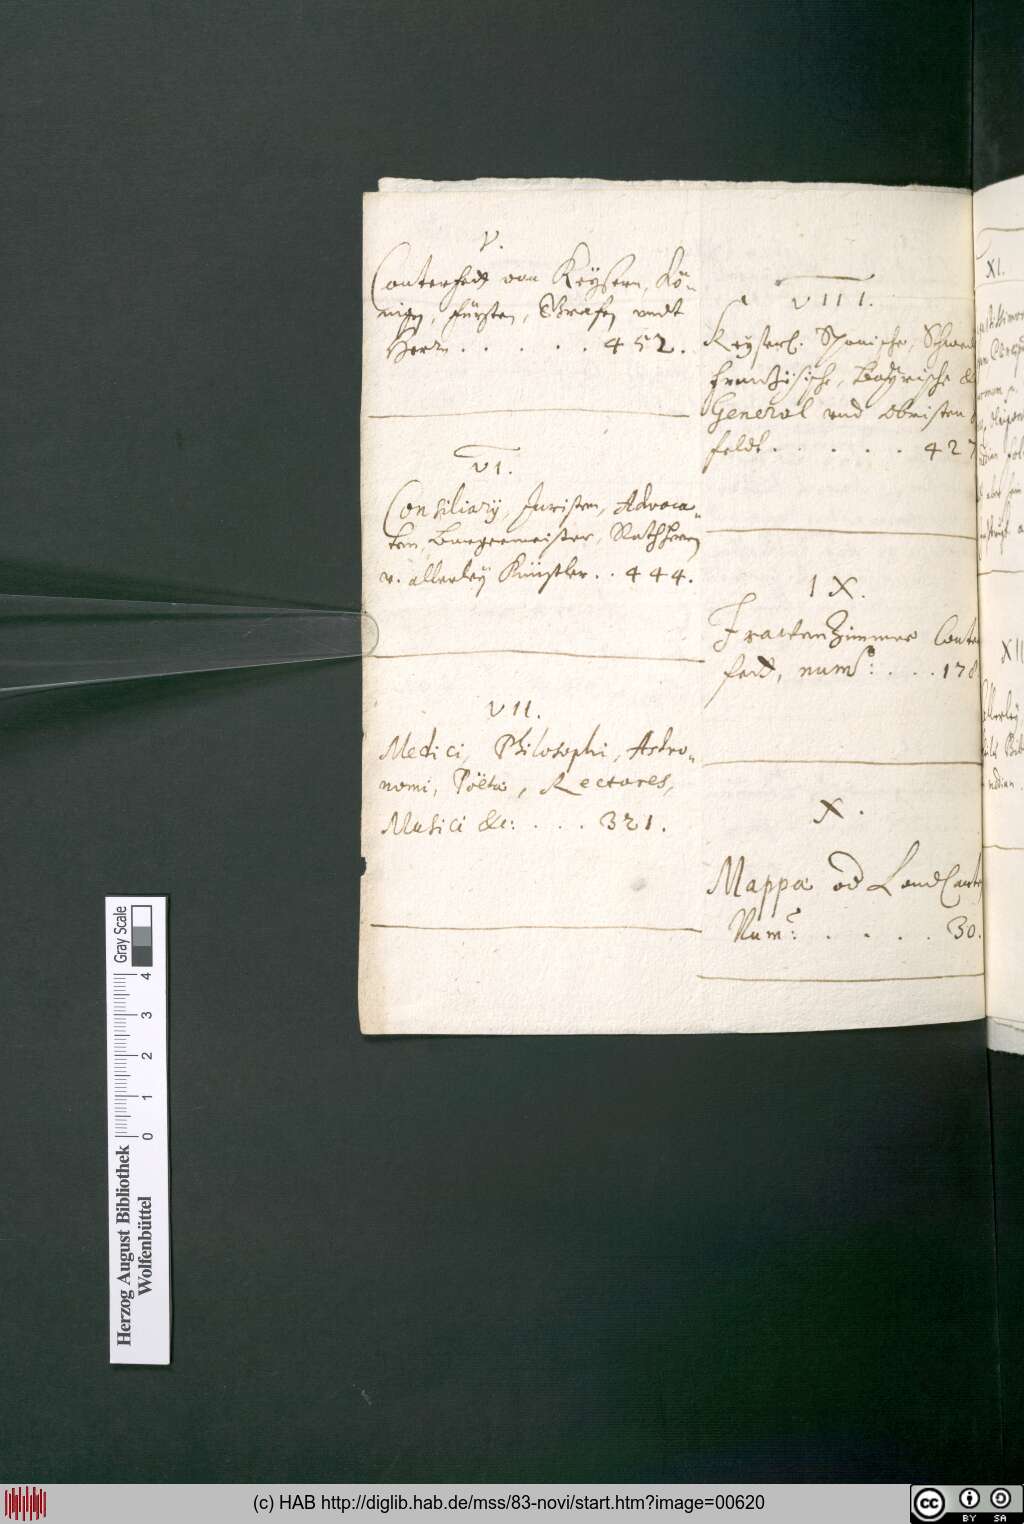 V.
Conterfect von Keysern, Kö-
nigen, Fürsten, Grafen vndt
Herrn . . . . . 452.
VI.
Consiliarij, Juristen, Advoca-
ten, Burgermeister, Rathherrn
v. allerley Künstler . . 444.
VII.
Medici, Philosophi, Astro-
nomi, Poëtæ, Rectores,
Musici &c: . . . 321.
VIII.
Keyserl. Spanische, Schwed
Frantzösische, Bayrische &
General vnd Obristen
feldt . . . . . 427
IX.
FrawenZimmer Conte
fect, num: . . . 178
X.
Mappæ od LandCarte
Num: . . . . 30.
XI.
XII
allerley
Gray Scale
0 1 2 3 4
Herzog August Bibliothek
Wolfenbüttel
(c) HAB http://diglib.hab.de/mss/83-novi/start.htm?image=00620
cc BY SA